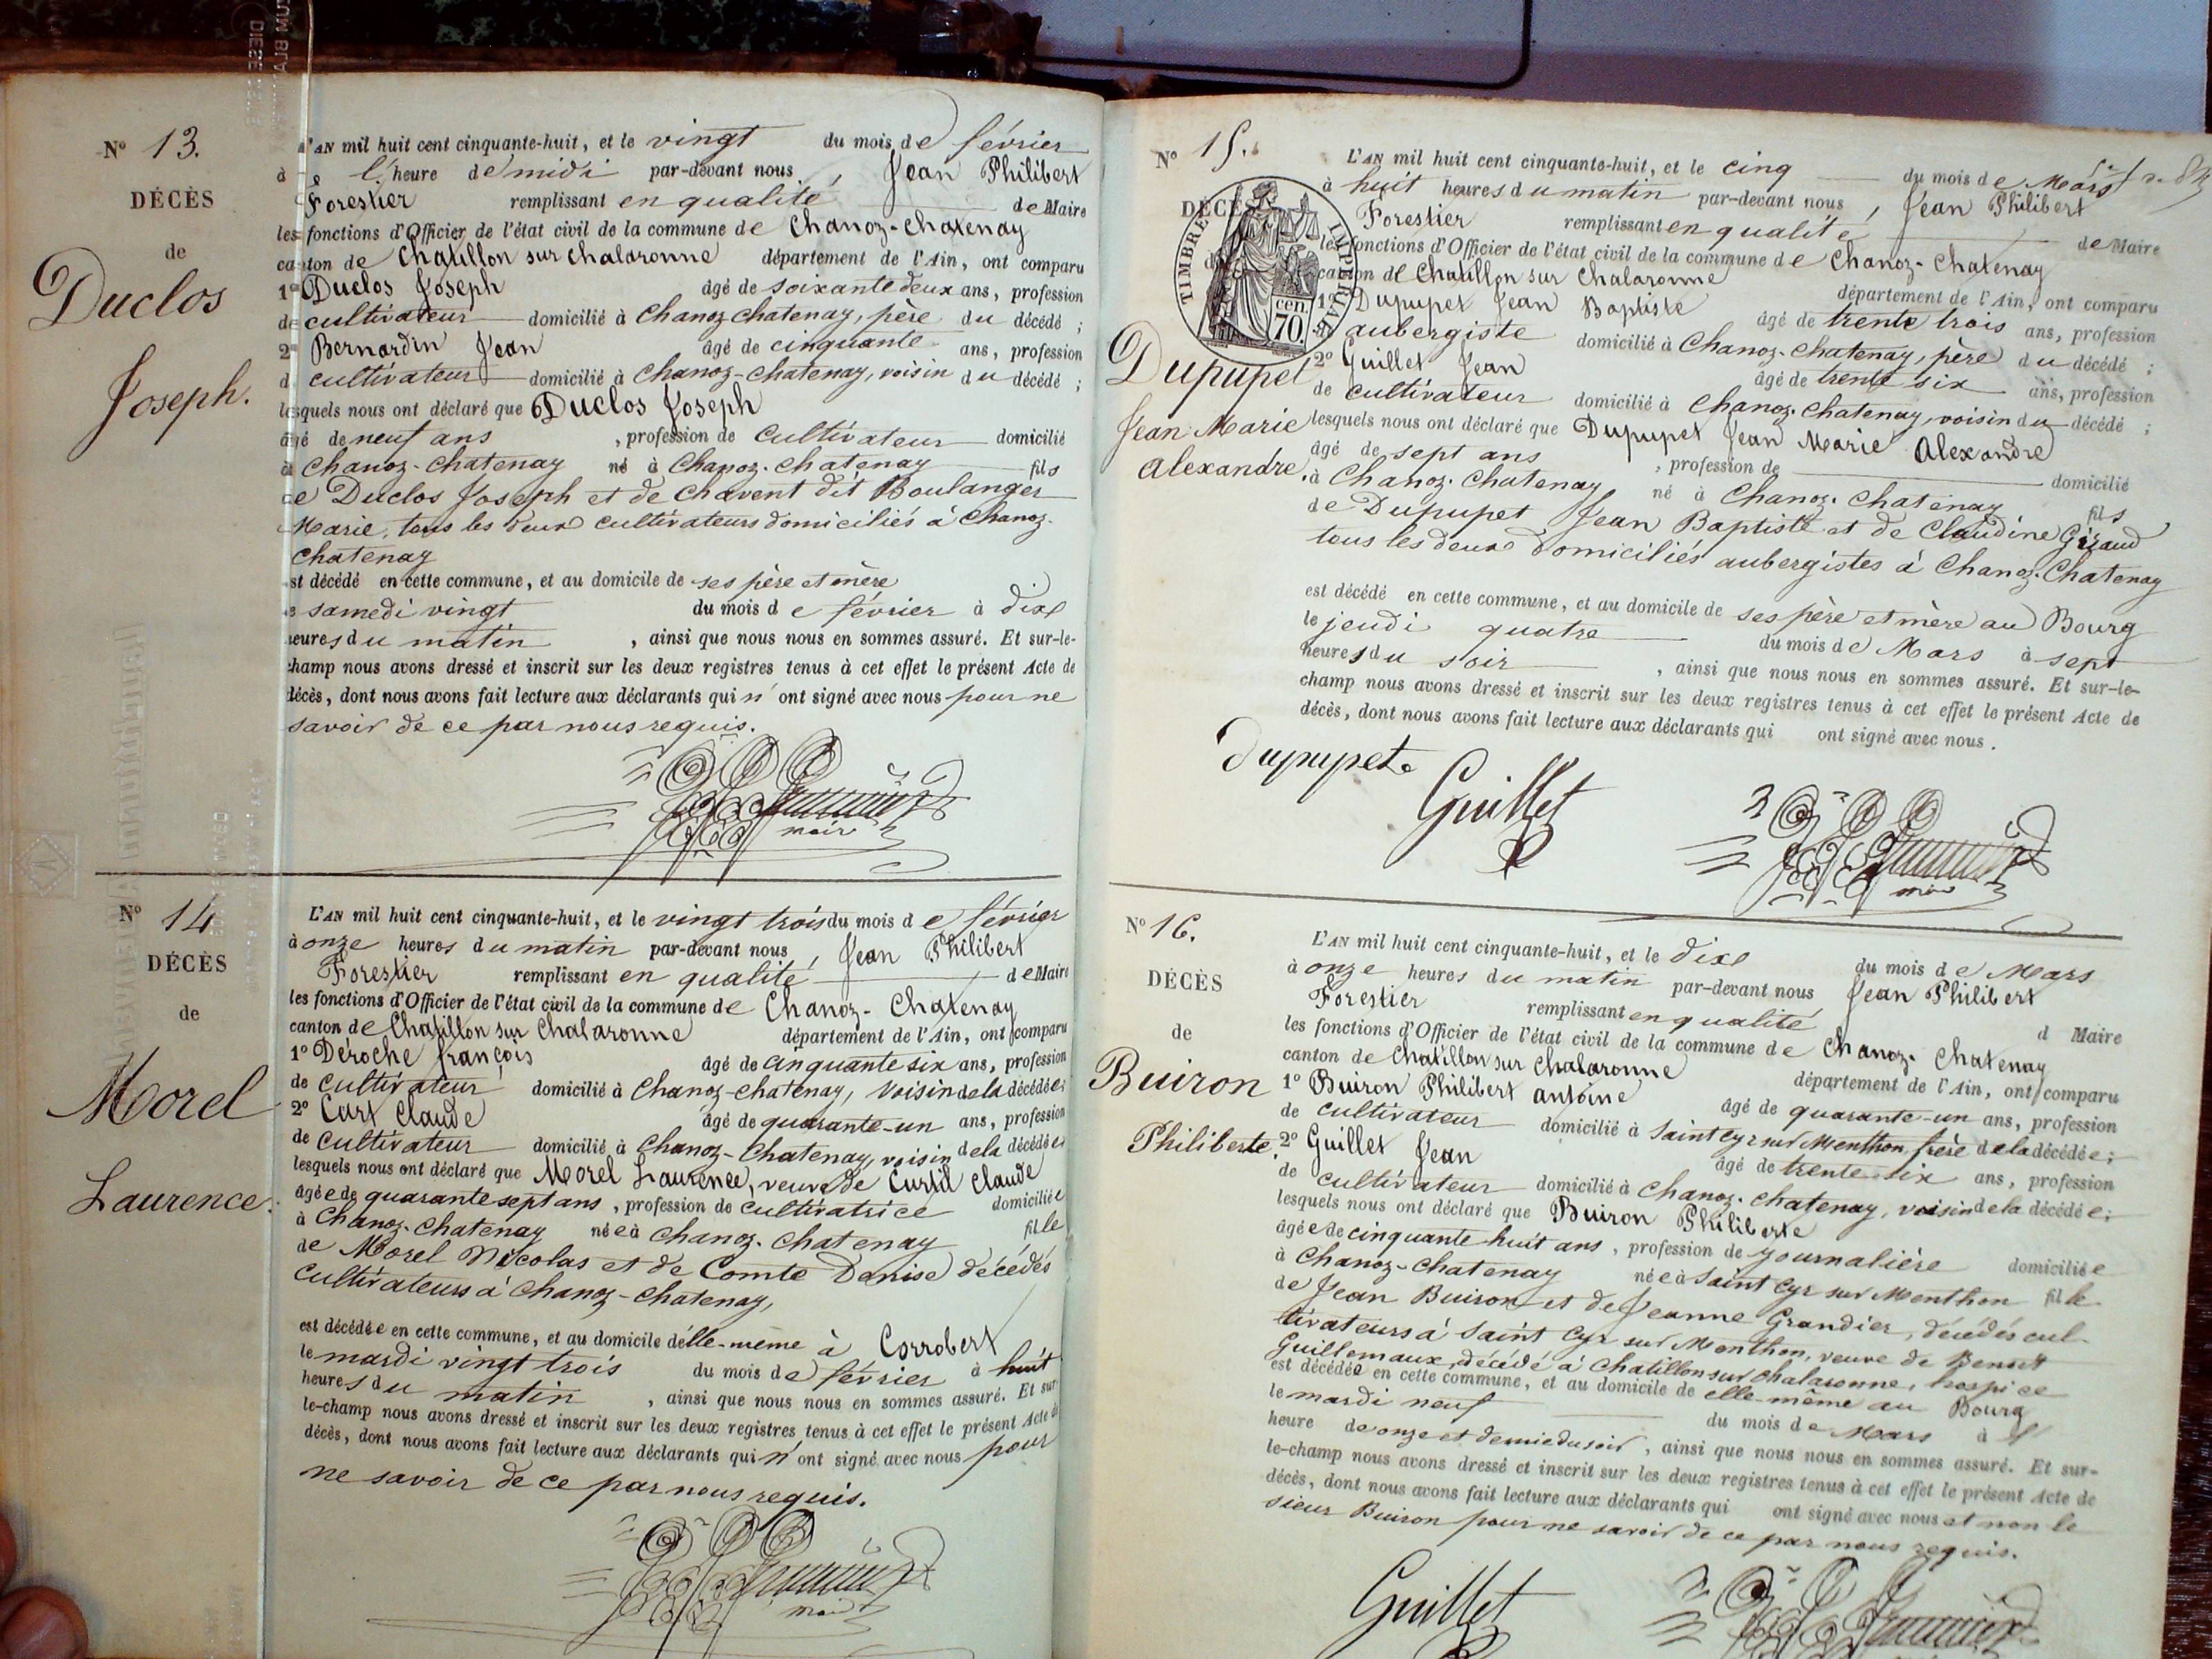 N° 13.
DÉCÈS
de
Duclos
Joseph.
L'AN mil huit cent cinquante-huit, et le vingt du mois de février
à l'heure de midi par-devant nous, Jean Philibert
Forestier remplissant en qualité de Maire
les fonctions d'Officier de l'état civil de la commune de Chanoz-Chatenay
canton de Chatillon sur Chalaronne département de l'Ain, ont comparu
1° Duclos Joseph âgé de soixante deux ans, profession
de cultivateur domicilié à Chanoz chatenay, père du décédé ;
2° Bernardin Jean âgé de cinquante ans, profession
d cultivateur domicilié à Chanoz-Chatenay, voisin du décédé ;
lesquels nous ont déclaré que Duclos Joseph
âgé de neuf ans , profession de cultivateur domicilié
à Chanoz-Chatenay né à Chanoz-chatenay fils
de Duclos Joseph et de Chavent dit Boulanger
Marie, tous les deux cultivateurs domiciliés à Chanoz-
Chatenay
est décédé en cette commune, et au domicile de ses père et mère
le samedi vingt du mois de février à dix
heures du matin , ainsi que nous nous en sommes assuré. Et sur-le-
champ nous avons dressé et inscrit sur les deux registres tenus à cet effet le présent Acte de
décès, dont nous avons fait lecture aux déclarants qui n'ont signé avec nous pour ne
savoir de ce par nous requis.
maire
N° 14
DÉCÈS
de
Morel
Laurence.
L'AN mil huit cent cinquante-huit, et le vingt trois du mois de février
à onze heures du matin par-devant nous, Jean Philibert
Forestier remplissant en qualité de Maire
les fonctions d'Officier de l'état civil de la commune de Chanoz-Chatenay
canton de Chatillon sur Chalaronne département de l'Ain, ont comparu
1° Déroche françois âgé de cinquante six ans, profession
de cultivateur domicilié à Chanoz-chatenay, Voisin de la décédée ;
2° Curt Claude âgé de quarante-un ans, profession
de cultivateur domicilié à Chanoz-Chatenay, voisin de la décédée
lesquels nous ont déclaré que Morel Laurence, veuve de Curtil Claude
âgée de quarante sept ans , profession de cultivatrice domiciliée
à Chanoz-Chatenay née à Chanoz-Chatenay fille
de Morel Nicolas et de Comte Denise décédés
cultivateurs à Chanoz-chatenay,
est décédée en cette commune, et au domicile d'elle-même à Corrobert
le mardi vingt trois du mois de février à huit
heures du matin , ainsi que nous nous en sommes assuré. Et sur
le-champ nous avons dressé et inscrit sur les deux registres tenus à cet effet le présent Acte de
décès, dont nous avons fait lecture aux déclarants qui n'ont signé avec nous pour
ne savoir de ce par nous requis.
maire
N° 15.
DÉCÈS
TIMBRE IMPÉRIAL
70. cen.
Dupupet
Jean Marie
Alexandre.
L'AN mil huit cent cinquante-huit, et le cinq du mois de Mars
à huit heures du matin par-devant nous, Jean Philibert
Forestier remplissant en qualité de Maire
les fonctions d'Officier de l'état civil de la commune de Chanoz-Chatenay
canton de Chatillon sur Chalaronne département de l'Ain, ont comparu
1° Dupupet Jean Baptiste âgé de trente trois ans, profession
aubergiste domicilié à Chanoz-Chatenay, père du décédé ;
2° Guillet Jean âgé de trente six ans, profession
de cultivateur domicilié à Chanoz-Chatenay, voisin du décédé ;
lesquels nous ont déclaré que Dupupet Jean Marie Alexandre
âgé de sept ans , profession de domicilié
à Chanoz-Chatenay né à Chanoz-Chatenay fils
de Dupupet Jean Baptiste et de Claudine Giraud
tous les deux domiciliés aubergistes à Chanoz-Chatenay
est décédé en cette commune, et au domicile de ses père et mère au Bourg
le jeudi quatre du mois de Mars à sept
heures du soir , ainsi que nous nous en sommes assuré. Et sur-le-
champ nous avons dressé et inscrit sur les deux registres tenus à cet effet le présent Acte de
décès, dont nous avons fait lecture aux déclarants qui ont signé avec nous.
Dupupet
Guillet
maire
N° 16.
DÉCÈS
de
Buiron
Philiberte.
L'AN mil huit cent cinquante-huit, et le dix du mois de Mars
à onze heures du matin par-devant nous Jean Philibert
Forestier remplissant en qualité d Maire
les fonctions d'Officier de l'état civil de la commune de Chanoz-Chatenay
canton de Chatillon sur Chalaronne département de l'Ain, ont comparu
1° Buiron Philibert antoine âgé de quarante-un ans, profession
de cultivateur domicilié à Saint Cyr sur Menthon, frère de la décédée ;
2° Guillet Jean âgé de trente six ans, profession
de cultivateur domicilié à Chanoz-Chatenay, voisin de la décédée ;
lesquels nous ont déclaré que Buiron Philiberte
âgée de cinquante huit ans , profession de journalière domiciliée
à Chanoz-Chatenay née à Saint Cyr sur Menthon fille
de Jean Buiron et de Jeanne Grandier, décédés cul-
tivateurs à Saint Cyr sur Menthon, veuve de Benoît
Guillemaux, décédé à Chatillon sur Chalaronne, hospice
est décédée en cette commune, et au domicile de elle-même au Bourg
le mardi neuf du mois de Mars à l'
heure de onze et demie du soir , ainsi que nous nous en sommes assuré. Et sur-
le-champ nous avons dressé et inscrit sur les deux registres tenus à cet effet le présent Acte de
décès, dont nous avons fait lecture aux déclarants qui ont signé avec nous et non le
sieur Buiron pour ne savoir de ce par nous requis.
Guillet